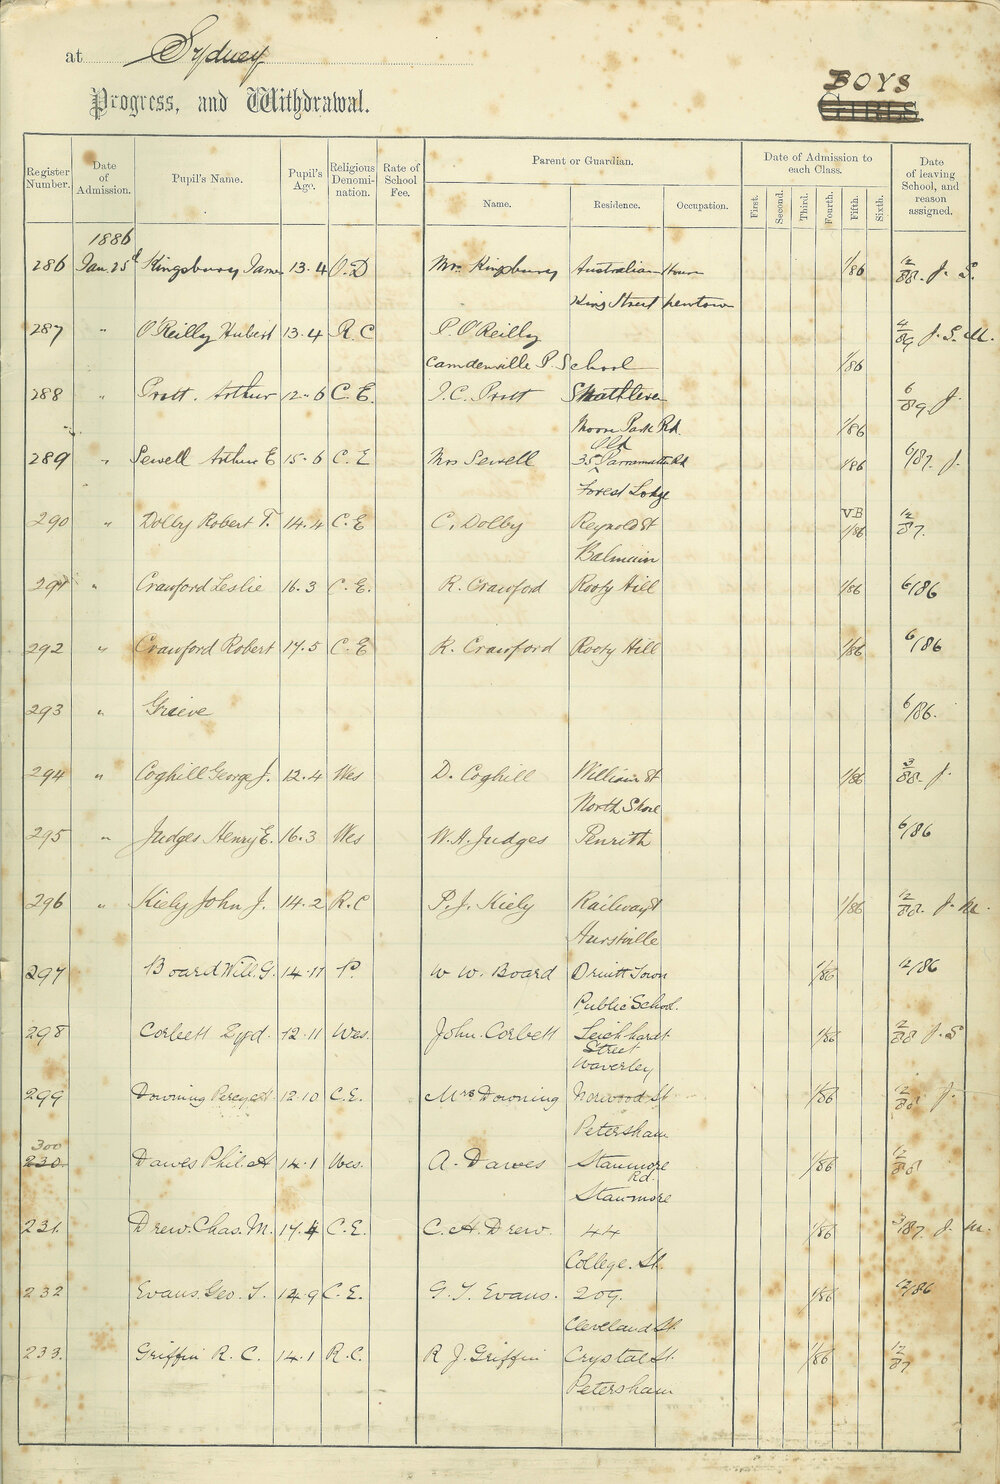 at Sydney
Progress, and Withdrawal.
BOYS
GIRLS.
Register Number. Date of Admission. Pupil's Name. Pupil's Age. Religious Denomi-nation. Rate of School Fee. Parent or Guardian. Date of Admission to each Class. Date of leaving School, and reason assigned.
Name. Residence. Occupation. First. Second. Third. Fourth. Fifth. Sixth.
1886
286 Jan. 25d Kingsbury James 13.4 O.D Mr. Kingsbury Australian House 1/86 12/88. J. S.
King Street Newtown
287 " O'Reilly Hubert 13.4 R.C P. O'Reilly 4/89 J. S. M.
Camdenville P. School 1/86
288 " Pratt. Arthur 12.6 C.E. J.C. Pratt Strathleven 6/89 J
Moore Park Rd 1/86
289 " Sewell Arthur E 15.6 C.E Mrs Sewell 35 Old Parramatta Rd 1/86 6/87. J.
Forest Lodge
290 " Dolby Robert T. 14.4 C.E C. Dolby Reynold St VB 1/86 12/87.
Balmain
291 " Crawford Leslie 16.3 C.E. R. Crawford Rooty Hill 1/86 6/86
292 " Crawford Robert 17.5 C.E R. Crawford Rooty Hill 1/86 6/86
293 " Grieve 6/86.
294 " Coghill George J. 12.4 Wes D. Coghill William St 1/86 3/88. J.
North Shore
295 " Judges Henry E. 16.3 Wes W.H. Judges Penrith 6/86
296 " Kiely John J. 14.2 R.C P.J. Kiely Railway St 1/86 12/88. J. M.
Hurstville
297 Board Will. G. 14.11 P. W W. Board Druitt Town 1/86 12/86
Public School.
298 Corbett Syd. 12.11 Wes. John. Corbett Leichhardt 1/86 12/88 J. S
Street
Waverley
299 Downing Percy H. 12.10 C.E. Mrs Downing Norwood St 1/86 12/88 J.
Petersham
300
230 Dawes Phil. H 14.1 Wes. A. Dawes Stanmore 1/86 12/88
Rd.
Stanmore
231. Drew. Chas. M. 14.4 C.E. C. H. Drew. 44 1/86 3/87. J. M.
College. St.
232 Evans. Geo. T. 12.9 C.E. G. T. Evans. 209. 1/86 12/86
Cleveland St.
233. Griffin R. C. 14.1 R.C. R J. Griffin Crystal St. 1/86 12/87
Petersham